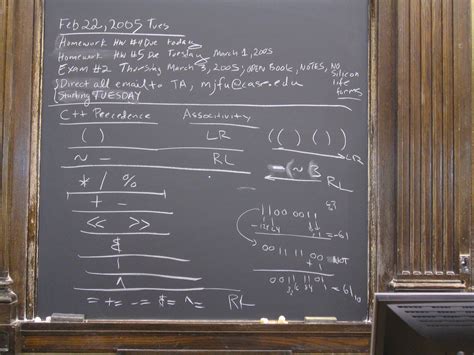 Feb 22, 2005 Tues
Homework HW #4 Due today
Homework HW #5 Due Tuesday March 1, 2005
Exam #2 Thursday March 3, 2005; open Book, Notes, NO silicon life forms
Direct all email to TA, mjfu@case.edu
Starting TUESDAY
C++ Precedence Associtivity
( ) LR (( ) ( )) LR
~ - RL -(~ 3 RL
* / %
+ -
<< >>
&
|
^
= += -= &= ^= RL
1100 0011
= -61
0011 11 00 NOT
+1
0011 11 01
= 61₁₀